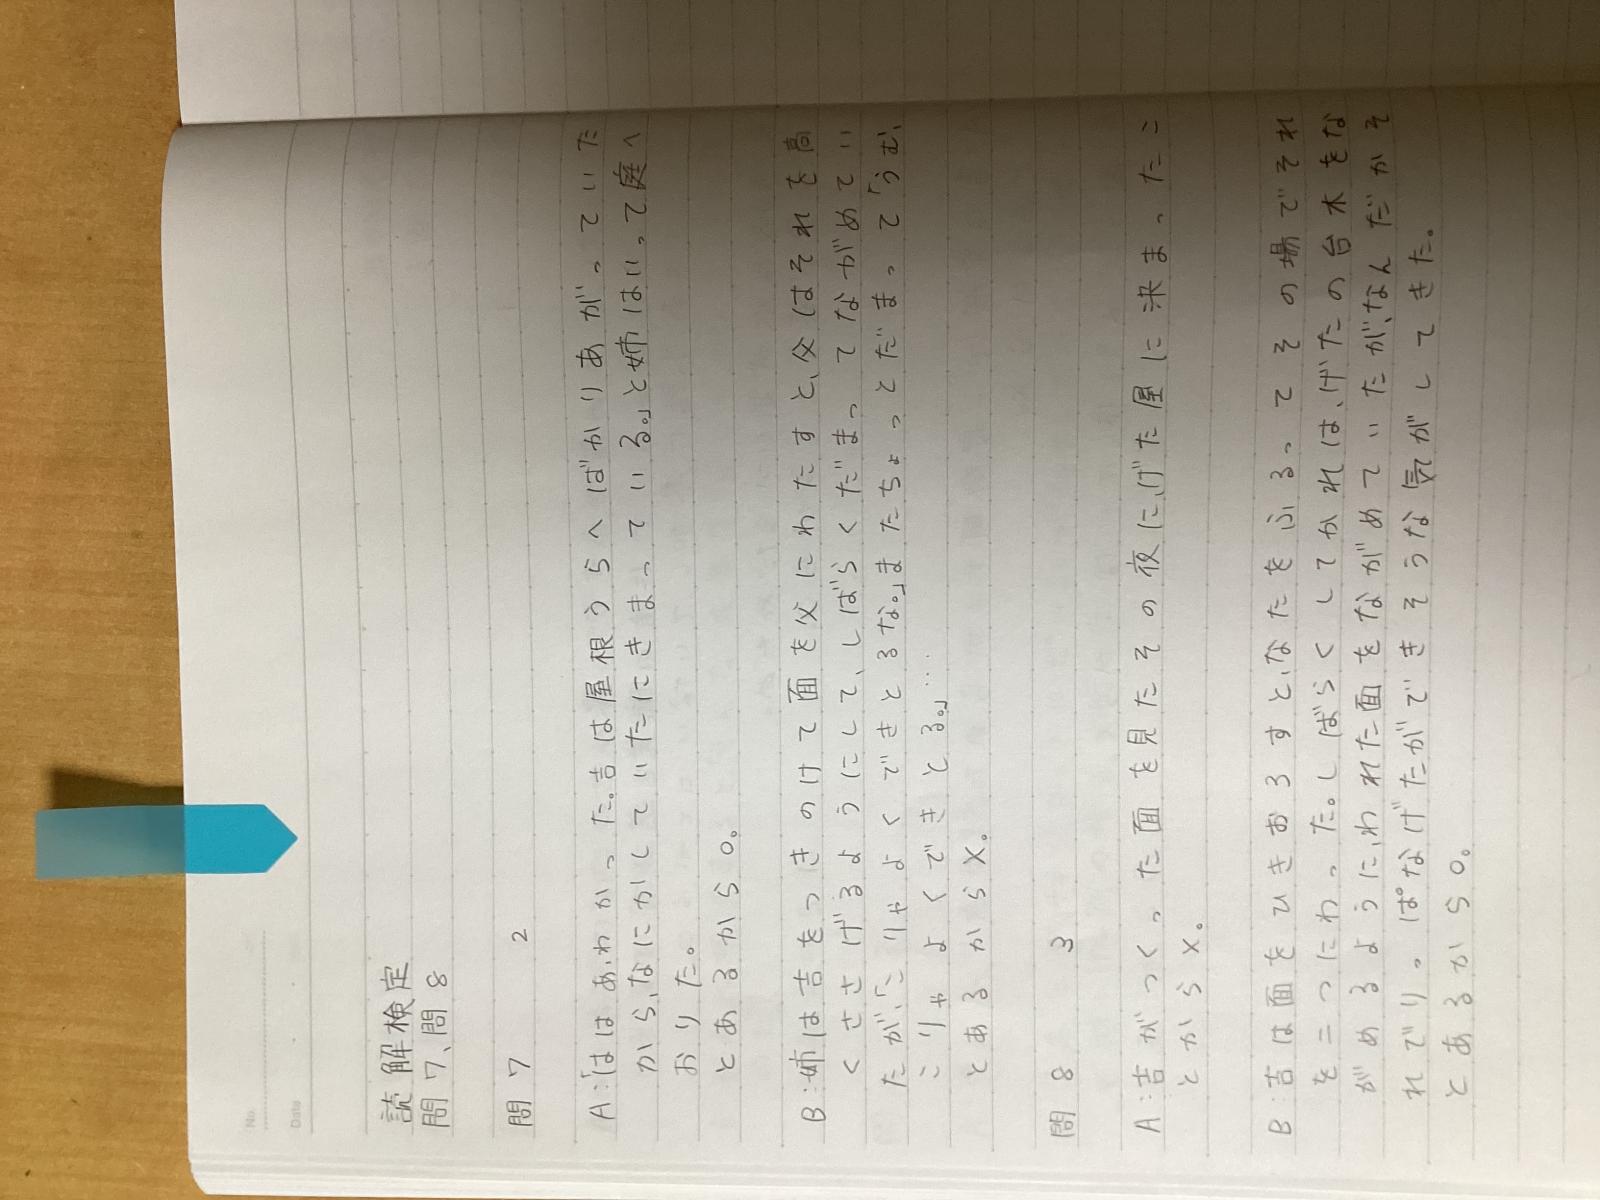 No.
Date
読解検定
問7、問8
問7 2
A:「はは あ、わかった。吉は屋根うらへばかりあがっていた
から、なにかしていたにきまっている。」と姉はいって庭へ
おりた。
とあるから○。
B:姉は吉をつきのけて面を父にわたすと、父はそれを高
くささげるようにして、しばらくだまってながめてい
たが、「こりゃよくできとるな。」またちょっとだまって「うむ、
こりゃよくできとる。」…
とあるから×。
問8 3
A:吉がつくった面を見たその夜に、げた屋に決まったこ
とから×。
B:吉は面をひきおろすと、なたをふるってその場でそれ
を二つにわった。しばらくしてかれは、げたの台木をな
がめるように、われた面をながめていたが、なんだかそ
れでりっぱなげたができそうな気がしてきた。
とあるから○。